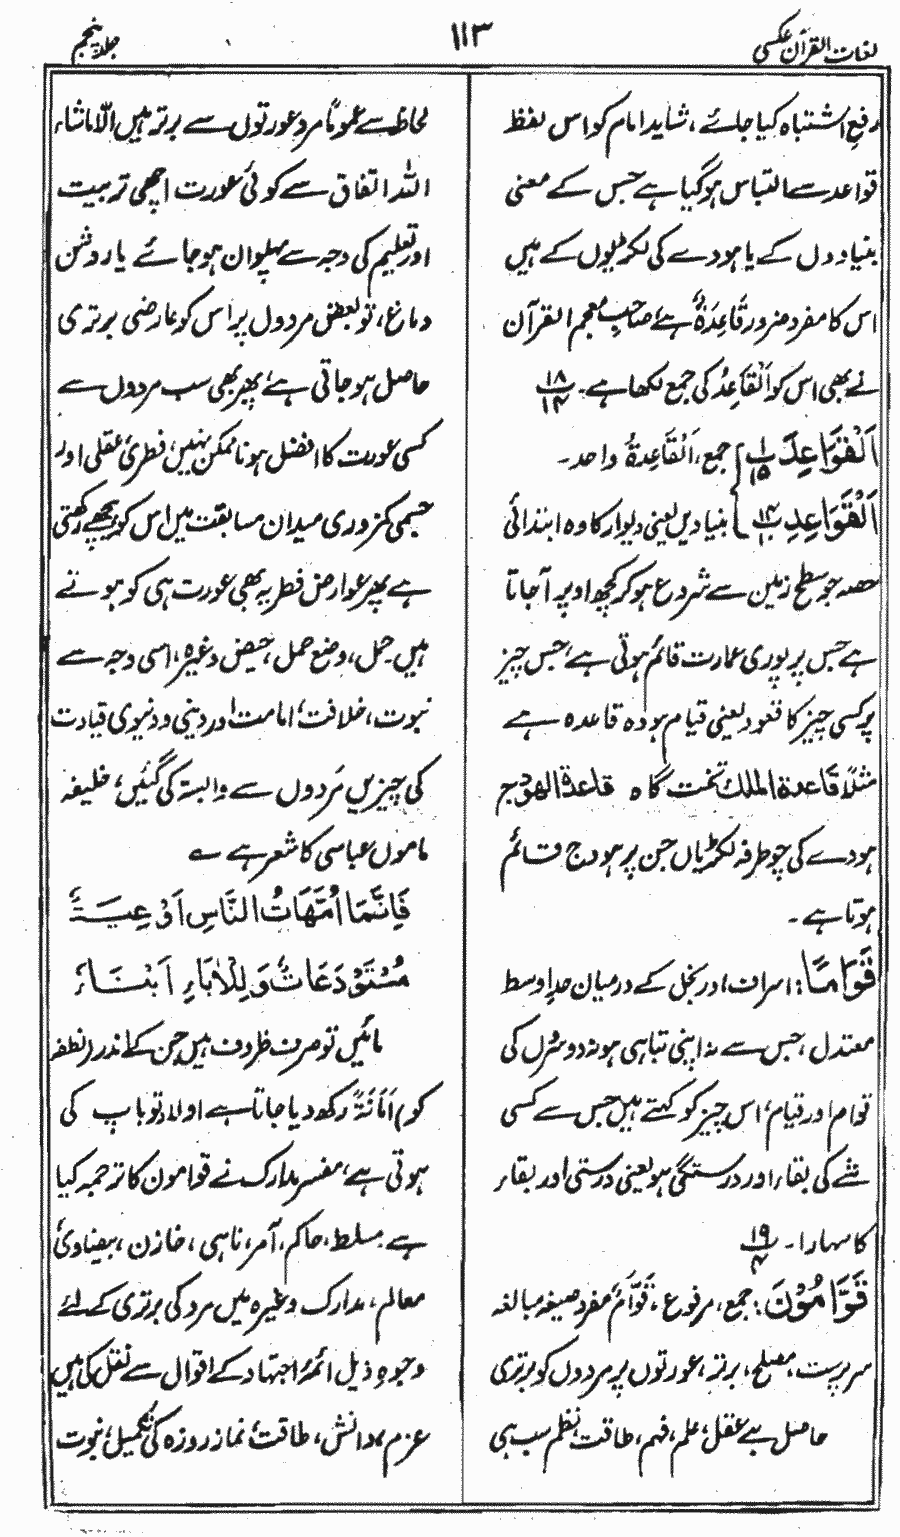 لغات القرآن عکسی
۱۱۳
جلد پنجم
رفع اشتباہ کیا جائے، شاید امام کو اس لفظ
قواعد سے التباس ہو گیا ہے جس کے معنی
بنیادوں کے یا ہودے کی لکڑیوں کے ہیں
اس کا مفرد ضرور قَاعِدَۃٌ ہے، صاحبِ معجم القرآن
نے بھی اس کو اَلْقَاعِدُ کی جمع لکھا ہے۔ ۱۸/۱۴
اَلْقَوَاعِدَ پ ۱/۱۵ جمع، اَلْقَاعِدَۃُ واحد۔
اَلْقَوَاعِدِ پ ۱۴/۱۰ بنیادیں یعنی دیوار کا وہ ابتدائی
حصہ جو سطح زمین سے شروع ہو کر کچھ اوپر آجاتا
ہے جس پر پوری عمارت قائم ہوتی ہے، جس چیز
پر کسی چیز کا قعود یعنی قیام ہو وہ قاعدہ ہے
مثلًا قاعدۃ الملک تخت گاہ قاعدۃ الھودج
ہودے کی چو طرفہ لکڑیاں جن پر ہودج قائم
ہوتا ہے۔
قَوَامًا: اسراف اور بخل کے درمیان حدِ اوسط
معتدل، جس سے نہ اپنی تباہی ہو نہ دوسروں کی
قوام اور قیام، اس چیز کو کہتے ہیں جس سے کسی
شے کی بقاء اور درستگی ہو یعنی درستی اور بقاء
کا سہارا۔ ۱۹/۴
قَوَّامُوْنَ: جمع، مرفوع، قَوَّامٌ مفرد صیغہ مبالغہ
سرپرست، مصلح، برتر، عورتوں پر مردوں کو برتری
حاصل ہے عقل، علم، فہم، طاقت، نظم سب ہی
لحاظ سے عمومًا مرد عورتوں سے برتر ہیں الّا ماشاء
اللہ اتفاق سے کوئی عورت اچھی تربیت
اور تعلیم کی وجہ سے پہلوان ہو جائے یا روشن
دماغ، تو بعض مردوں پر اس کو عارضی برتری
حاصل ہو جاتی ہے، پھر بھی سب مردوں سے
کسی عورت کا افضل ہونا ممکن نہیں، فطری عقلی اور
جسمی کمزوری میدان مسابقت میں اس کو پیچھے رکھتی
ہے پھر عوارض فطریہ بھی عورت ہی کو ہوتے
ہیں۔ حمل، وضع حمل، حیض وغیرہ، اسی وجہ سے
نبوت، خلافت، امامت اور دینی و دنیوی قیادت
کی چیزیں مَردوں سے وابستہ کی گئیں، خلیفہ
ماموں عباسی کا شعر ہے ؎
فَاِنَّمَا اُمَّهَاتُ النَّاسِ اَوْعِيَةٌ
مُسْتَوْدَعَاتٌ وَلِلْاٰبَاءِ اَبْنَاءٌ
مائیں تو صرف ظروف ہیں جن کے اندر (نطفہ
کو) اَمَانَةً رکھ دیا جاتا ہے اولاد تو باپ کی
ہوتی ہے، مفسر مدارک نے قوامون کا ترجمہ کیا
ہے مسلط، حاکم، آمر، ناہی، خازن، بیضاوی
معالم، مدارک وغیرہ میں مرد کی برتری کے لئے
وجوہِ ذیل ائمۂ اجتہاد کے اقوال سے نقل کی ہیں
عزم، دانش، طاقت، نماز روزہ کی تکمیل، نبوت